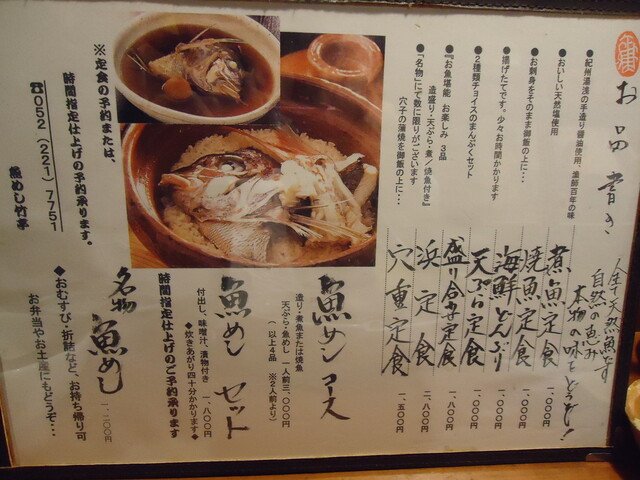 お品書き
人生・天然魚です
自然の恵み
本物の味をどうぞ!
●紀州湯浅の手造り醤油使用、漁師百年の味
煮魚定食 一、〇〇〇円
●おいしい天然塩使用
焼魚定食 一、〇〇〇円
●お刺身をそのまま御飯の上に…
海鮮どんぶり 一、〇〇〇円
●揚げたてです。少々お時間かかります
天ぷら定食 一、〇〇〇円
●2種類チョイスのまんぷくセット
盛り合わせ定食 一、八〇〇円
●『お魚堪能 お楽しみ 3品
造盛り・天ぷら・煮/焼魚付き』
浜定食 一、八〇〇円
●『名物』にて数に限りがございます
穴子の蒲焼を御飯の上に…
穴重定食 一、五〇〇円
魚めしコース
造り・煮魚または焼魚
天ぷら・魚めし 一人前三、〇〇〇円
(以上4品 ※2人前より)
魚めしセット
付出し、味噌汁、漬物付き 一、八〇〇円
◆炊きあがり四十分かかります◆
時間指定仕上げのご予約承ります
名物 魚めし 一、二〇〇円
●おむすび・折詰など、お持ち帰り可
お弁当やお土産にもどうぞ…
※定食の予約または、
時間指定仕上げの予約承ります。
☎052(221)7751
魚めし竹亭